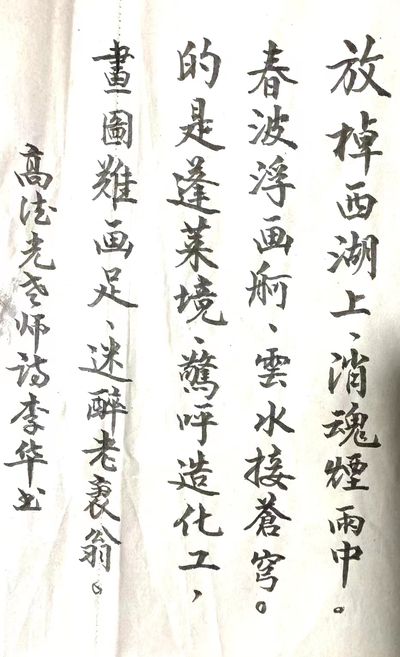 放棹西湖上、消魂煙雨中。
春波浮画舸、雲水接蒼穹。
的是蓬莱境、驚呼造化工，
畫圖難画足、迷醉老衰翁。
高法光老师诗李华书